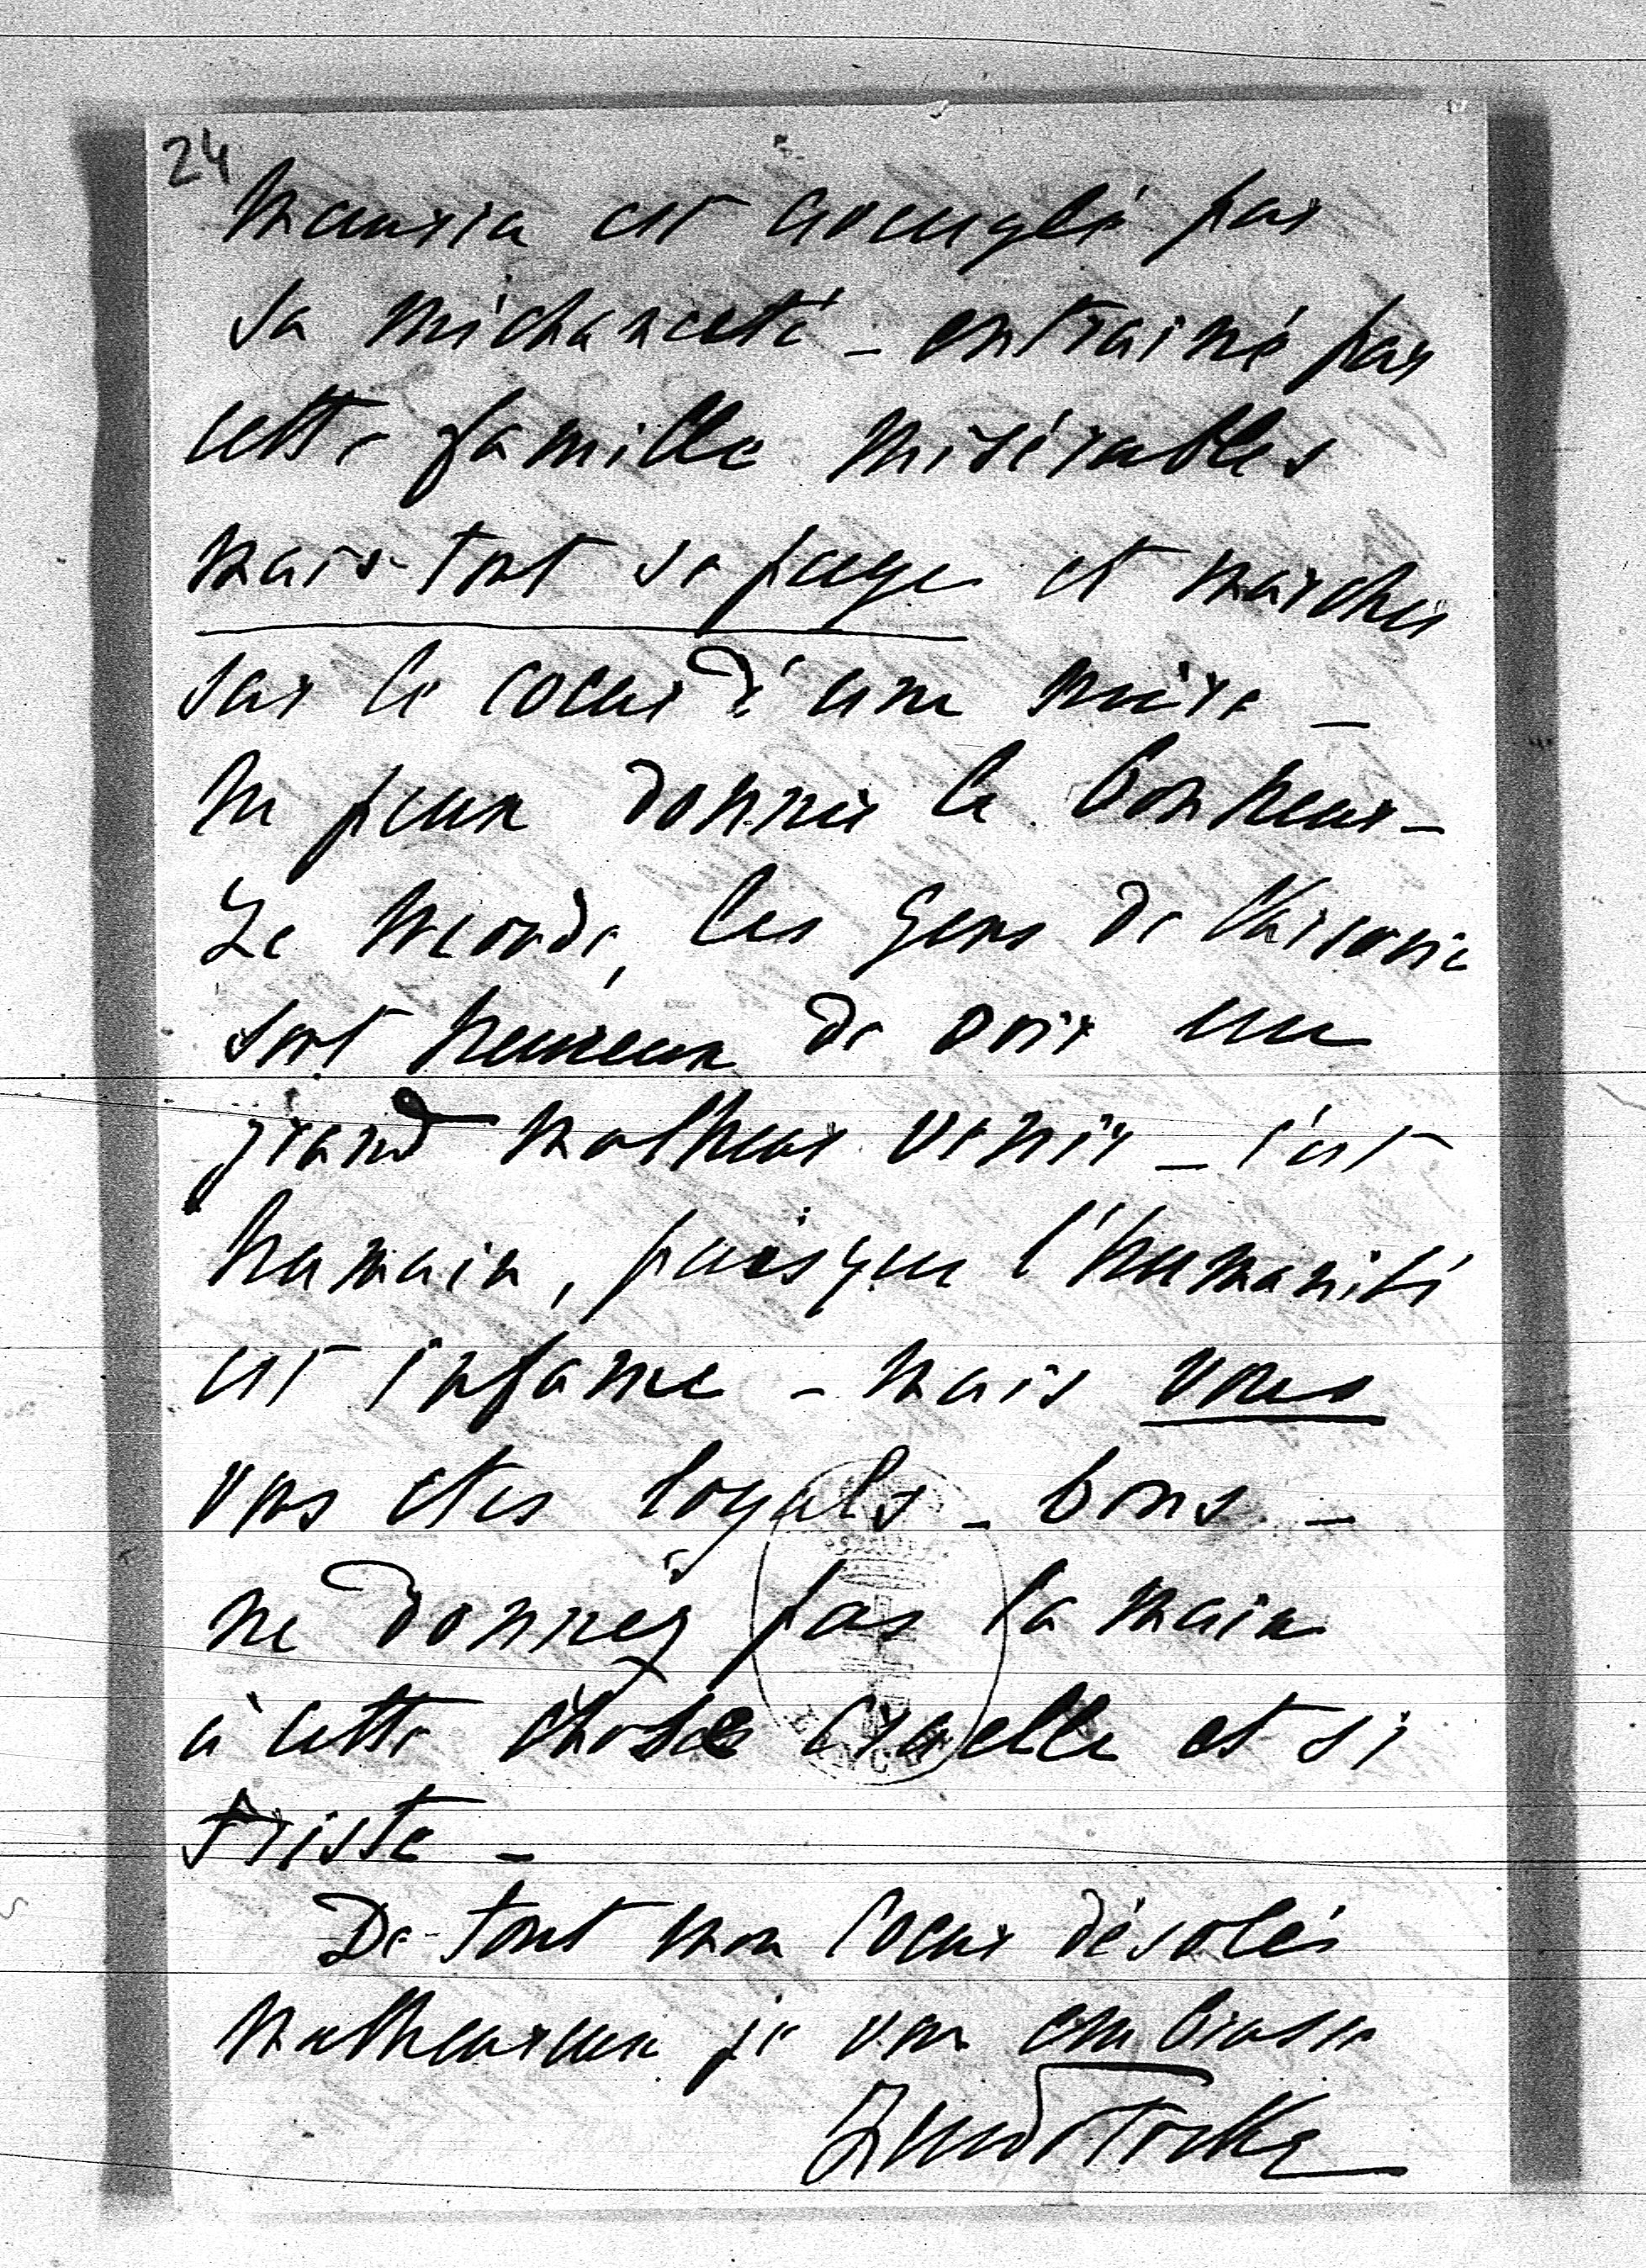 24
Maurice est aveuglé par
sa méchanceté - entrainé par
cette famille misérables
mais tout se paye et marcher
sur le cœur d'une mère -
ne peux donner le bonheur -
Le monde, les gens de
sont heureux de voir un
grand malheur venir - c'est
humain, puisque l'humanité
est infame - mais vous
vous etes loyals - bons -
ne donnez pas la main
à cette chose cruelle et si
triste -
De tout mon cœur désolés
malheureux je vous embrasse